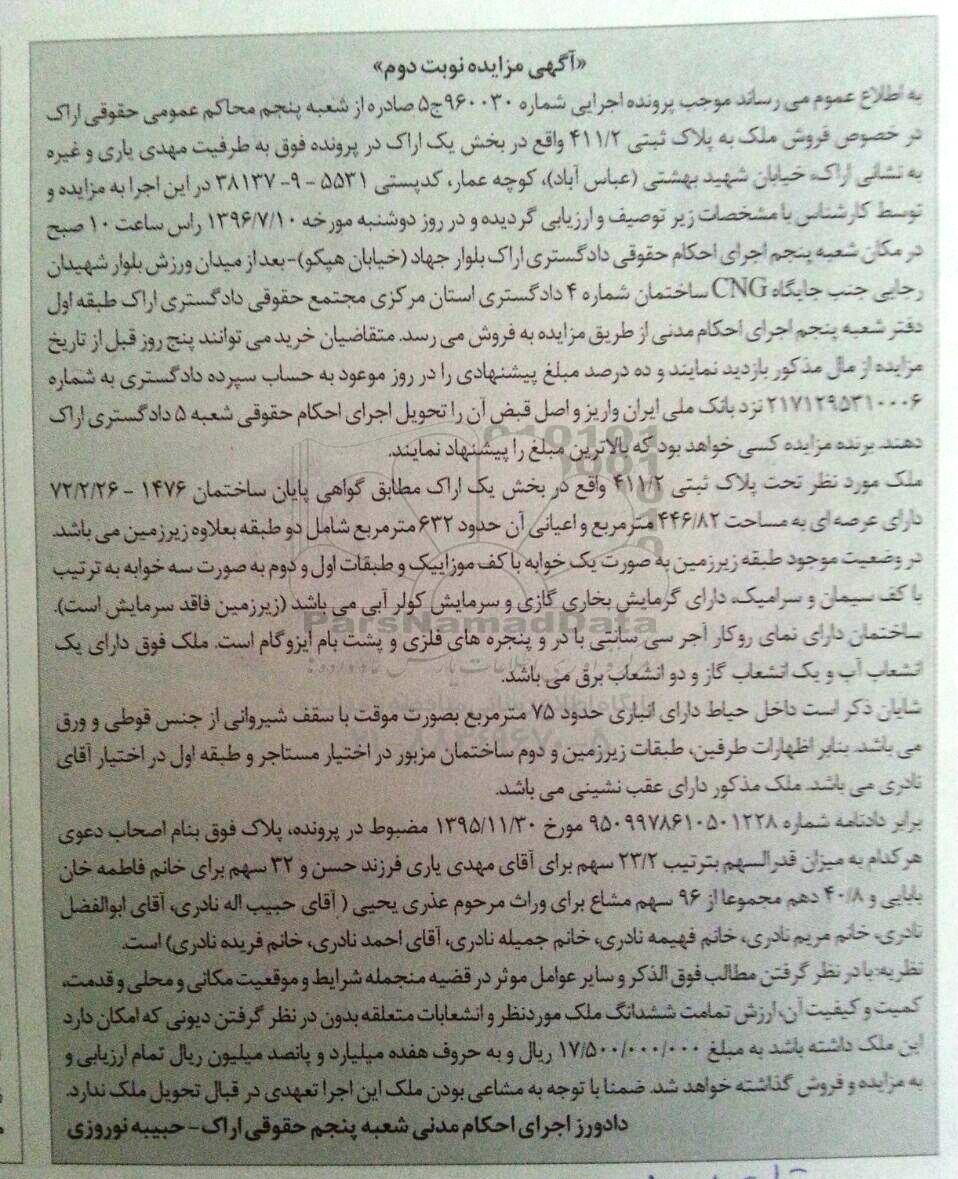 «آگهی مزایده نوبت دوم»
به اطلاع عموم می رساند موجب پرونده اجرایی شماره ۹۶۰۰۳۰ج۵ صادره از شعبه پنجم محاکم عمومی حقوقی اراک
در خصوص فروش ملک به پلاک ثبتی ۴۱۱/۲ واقع در بخش یک اراک در پرونده فوق به طرفیت مهدی یاری و غیره
به نشانی اراک، خیابان شهید بهشتی (عباس آباد)، کوچه عمار، کدپستی ۵۵۳۱ - ۹- ۳۸۱۳۷ در این اجرا به مزایده و
توسط کارشناس با مشخصات زیر توصیف و ارزیابی گردیده و در روز دوشنبه مورخه ۱۳۹۶/۷/۱۰ راس ساعت ۱۰ صبح
در مکان شعبه پنجم اجرای احکام حقوقی دادگستری اراک بلوار جهاد (خیابان هپکو)-بعد از میدان ورزش بلوار شهیدان
رجایی جنب جایگاه CNG ساختمان شماره ۴ دادگستری استان مرکزی مجتمع حقوقی دادگستری اراک طبقه اول
دفتر شعبه پنجم اجرای احکام مدنی از طریق مزایده به فروش می رسد. متقاضیان خرید می توانند پنج روز قبل از تاریخ
مزایده از مال مذکور بازدید نمایند و ده درصد مبلغ پیشنهادی را در روز موعود به حساب سپرده دادگستری به شماره
۲۱۷۱۲۹۵۳۱۰۰۰۶ نزد بانک ملی ایران واریز و اصل قبض آن را تحویل اجرای احکام حقوقی شعبه ۵ دادگستری اراک
دهند. برنده مزایده کسی خواهد بود که بالاترین مبلغ را پیشنهاد نمایند.
ملک مورد نظر تحت پلاک ثبتی ۴۱۱/۲ واقع در بخش یک اراک مطابق گواهی پایان ساختمان ۱۴۷۶ - ۷۲/۲/۲۶
دارای عرصه ای به مساحت ۴۴۶/۸۲ مترمربع و اعیانی آن حدود ۶۳۲ مترمربع شامل دو طبقه بعلاوه زیرزمین می باشد.
در وضعیت موجود طبقه زیرزمین به صورت یک خوابه با کف موزاییک و طبقات اول و دوم به صورت سه خوابه به ترتیب
با کف سیمان و سرامیک، دارای گرمایش بخاری گازی و سرمایش کولر آبی می باشد (زیرزمین فاقد سرمایش است).
ساختمان دارای نمای روکار آجر سی سانتی با در و پنجره های فلزی و پشت بام ایزوگام است. ملک فوق دارای یک
انشعاب آب و یک انشعاب گاز و دو انشعاب برق می باشد.
شایان ذکر است داخل حیاط دارای انباری حدود ۷۵ مترمربع بصورت موقت با سقف شیروانی از جنس قوطی و ورق
می باشد. بنابر اظهارات طرفین، طبقات زیرزمین و دوم ساختمان مزبور در اختیار مستاجر و طبقه اول در اختیار آقای
نادری می باشد. ملک مذکور دارای عقب نشینی می باشد.
برابر دادنامه شماره ۹۵۰۹۹۷۸۶۱۰۵۰۱۲۲۸ مورخ ۱۳۹۵/۱۱/۳۰ مضبوط در پرونده، پلاک فوق بنام اصحاب دعوی
هر کدام به میزان قدرالسهم بترتیب ۲۳/۲ سهم برای آقای مهدی یاری فرزند حسن و ۳۲ سهم برای خانم فاطمه خان
بابایی و ۴۰/۸ دهم مجموعا از ۹۶ سهم مشاع برای وراث مرحوم عذری یحیی ( آقای حبیب اله نادری، آقای ابوالفضل
نادری، خانم مریم نادری، خانم فهیمه نادری، خانم جمیله نادری، آقای احمد نادری، خانم فریده نادری) است.
نظریه: با در نظر گرفتن مطالب فوق الذکر و سایر عوامل موثر در قضیه منجمله شرایط و موقعیت مکانی و محلی و قدمت،
کمیت و کیفیت آن، ارزش تمامت ششدانگ ملک موردنظر و انشعابات متعلقه بدون در نظر گرفتن دیونی که امکان دارد
این ملک داشته باشد به مبلغ ۱۷/۵۰۰/۰۰۰/۰۰۰ ریال و به حروف هفده میلیارد و پانصد میلیون ریال تمام ارزیابی و
به مزایده و فروش گذاشته خواهد شد. ضمنا با توجه به مشاعی بودن ملک این اجرا تعهدی در قبال تحویل ملک ندارد.
دادورز اجرای احکام مدنی شعبه پنجم حقوقی اراک - حبیبه نوروزی
ParsNamadData